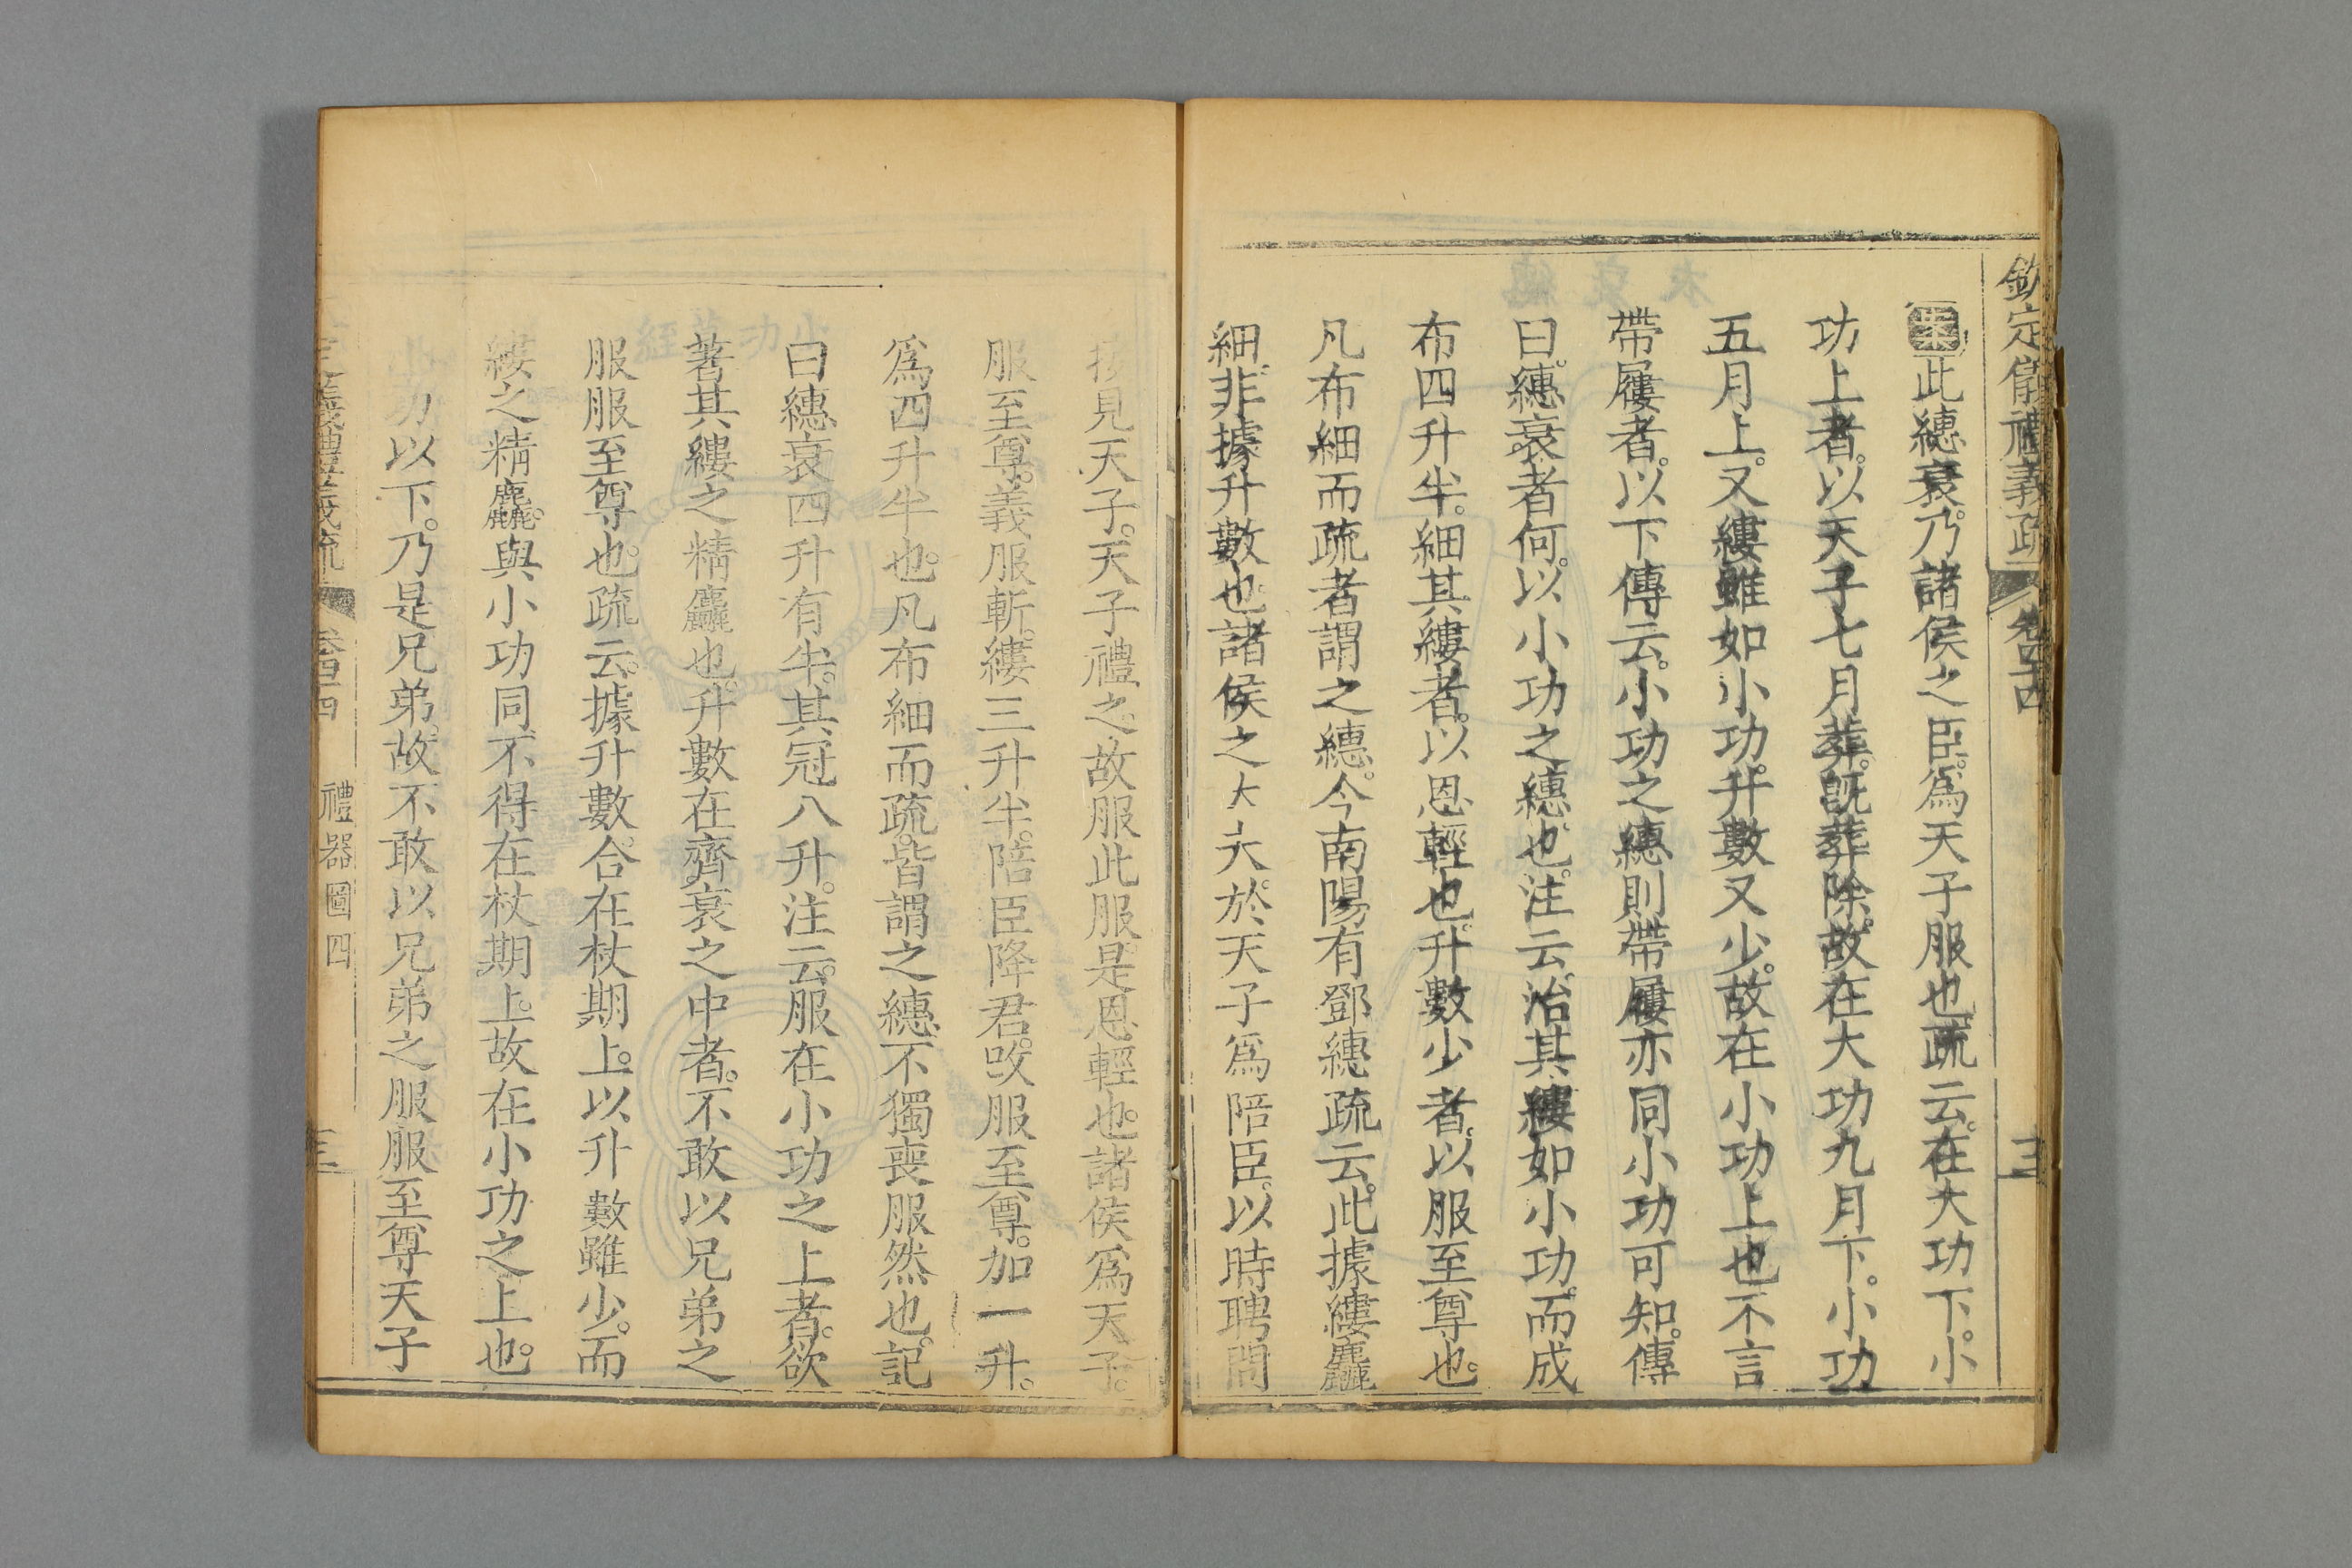 欽定儀禮義疏 卷四十四
案此繐衰乃諸侯之臣。爲天子服也疏云。在大功下。小
功上者。以天子七月葬。旣葬除。故在大功九月下。小功
五月上。又縷雖如小功。升數又少。故在小功上也不言
帶屨者。以下傳云。小功之繐則帶屨亦同小功可知。傳
曰。繐衰者何。以小功之繐也。注云。治其縷如小功。而成
布四升半。細其縷者。以恩輕也。升數少者。以服至尊也。
凡布細而疏者謂之繐。今南陽有鄧繐疏云。此據縷麤
細。非據升數也。諸侯之大夫。於天子爲陪臣。以時聘問
接見天子。天子禮之。故服此服是恩輕也。諸侯爲天子。
服至尊。義服斬。縷三升半。陪臣降君。改服至尊。加一升。
爲四升半也。凡布細而疏。皆謂之繐不獨喪服然也。記
曰繐衰四升有半。其冠八升。注云。服在小功之上者。欲
著其縷之精麤也。升數在齊衰之中者。不敢以兄弟之
服服至尊也。疏云。據升數。合在杖期上。以升數雖少。而
縷之精麤。與小功同。不得在杖期上。故在小功之上也。
以下。乃是兄弟。故不敢以兄弟之服服至尊天子
禮器圖四